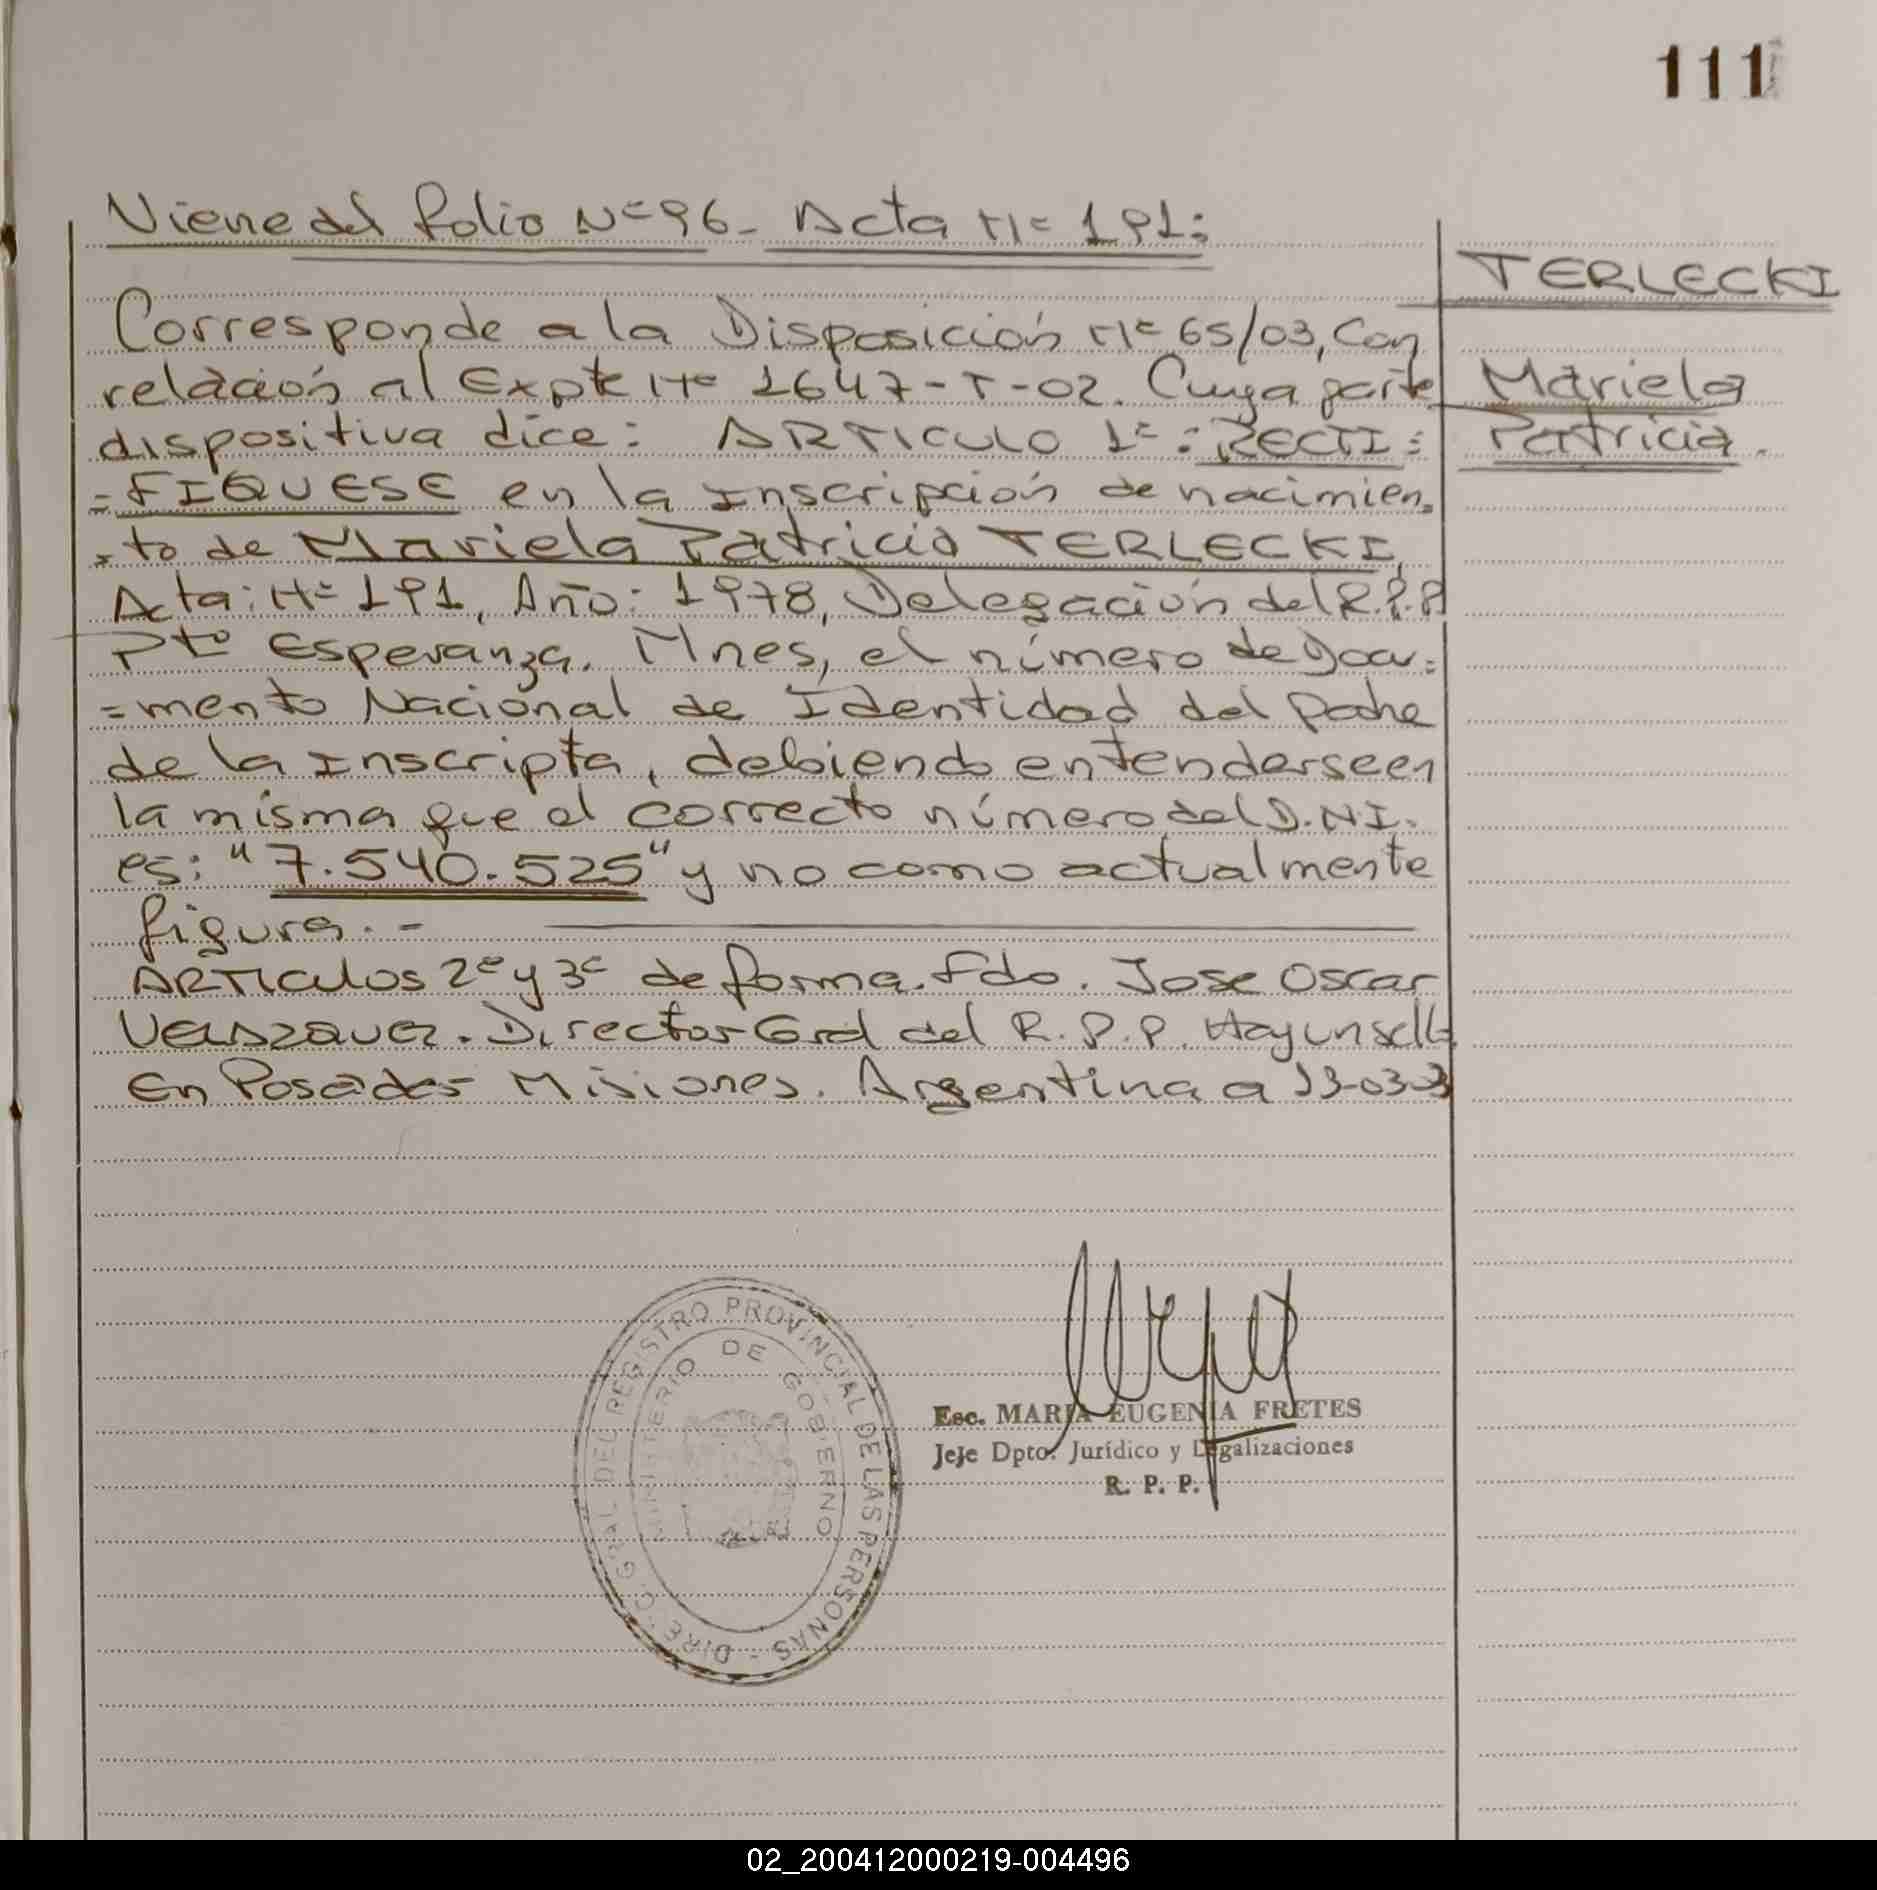 111
Viene del folio Nº 96 - Acta Nº 191:
TERLECKI
Mariela
Patricia.
Corresponde a la Disposición Nº 65/03, Con
relación al Expte Nº 1647-T-02. Cuya parte
dispositiva dice: ARTICULO 1º: RECTI=
=FIQUESE en la Inscripción de nacimien=
=to de Mariela Patricia TERLECKI,
Acta: Nº 191, Año: 1978, Delegación del R.P.P
Pto Esperanza. Mnes, el número de Docu=
=mento Nacional de Identidad del Padre
de la Inscripta, debiendo entenderse en
la misma que el correcto número del D.N.I.
es: "7.540.525" y no como actualmente
figura.-
ARTICULOS 2º y 3º de forma. Fdo. Jose Oscar
Director Gral del R.P.P. Hay un sello
En Posadas Misiones. Argentina a
DIREC. GRAL DEL REGISTRO PROVINCIAL DE LAS PERSONAS
MINISTERIO DE GOBIERNO
Esc. MARIA EUGENIA FRETES
Jefe Dpto. Jurídico y Legalizaciones
R. P. P.
02_200412000219-004496